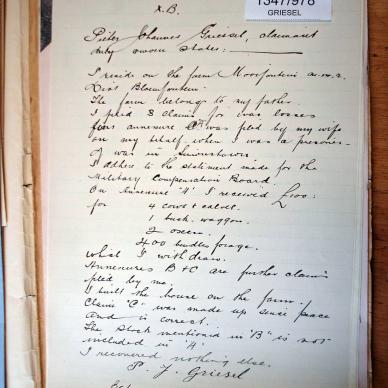 1347/978
GRIESEL
x.B.
Pieter Johannes Griesel, claimant
duly sworn states:
I reside on the farm Mooifontein
Dist Bloemfontein.
The farm belongs to my father.
I filed 3 claims for war losses
annexure was filed by my wife
on my behalf when I was a prisoner.
I was in Simonstown.
I adhere to the statement made for the
Military Compensation Board.
On Annexure "A" I received £100:
for 4 cows & calves.
1 buck waggon.
2 oxen.
400 bundles forage.
which I withdraw.
Annexures B & C are further claims
filed by me.
I built the house on the farm.
Claim "C" was made up since peace
and is correct.
The stock mentioned in "B" is not
included in "A"
I recovered nothing else.
P. J. Griesel